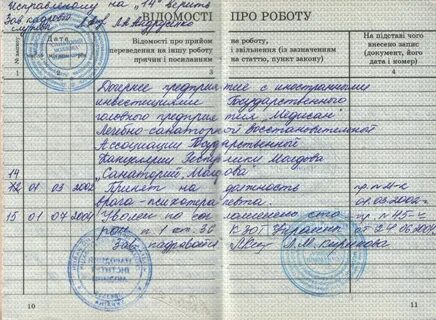 Исправленному на "14" верить
Зав кадрами
ВІДОМОСТІ ПРО РОБОТУ
№ запису
Дата
Відомості про прийом на роботу,
переведення на іншу роботу і звільнення (із зазначенням
причин і посиланням на статтю, пункт закону)
На підставі чого
внесено запис
(документ, його
дата і номер)
1 2 3 4
Дочернее предприятие с иностранными
инвестициями Государственного
головного предприятия "Медисан"
Лечебно санаторной восстановительной
Ассоциации Государственной
Канцелярии Республики Молдова
14 "Санаторий Молдова
01 03 2002 Принят на должность пр
врача-психотерапевта. 01.03.2002г
15 01 07 2004 Уволен по соглашению сто пр. №45-к
рон п 1 ст. 36 КЗОТ Украины от 24.06.2004
Зав кадрами
10
11